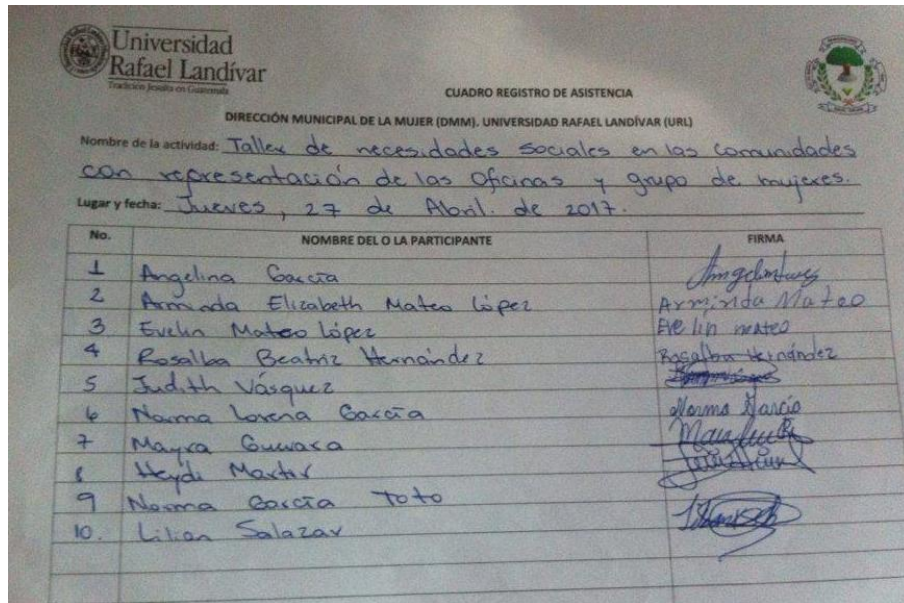 Universidad
Rafael Landívar
Tradición Jesuita en Guatemala
CUADRO REGISTRO DE ASISTENCIA
DIRECCIÓN MUNICIPAL DE LA MUJER (DMM). UNIVERSIDAD RAFAEL LANDÍVAR (URL)
Nombre de la actividad: Taller de necesidades sociales en las comunidades
con representación de las Oficinas y grupo de mujeres.
Lugar y fecha: Jueves, 27 de Abril. de 2017.
No. NOMBRE DEL O LA PARTICIPANTE FIRMA
1 Angelina García
2 Arminda Elizabeth Mateo López Arminda Mateo
3 Evelin Mateo López Evelin mateo
4 Rosalba Beatriz Hernández Rosalba Hernández
5 Judith Vásquez
6 Norma Lorena García Norma García
7 Mayra Guevara
8 Heydi Martir
9 Norma García Toto
10. Lilian Salazar